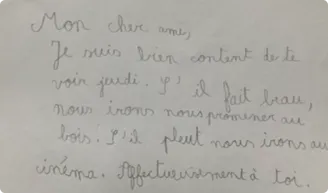 Mon cher ami,
Je suis bien content de te
voir jeudi. S'il fait beau,
nous irons nous promener au
bois. S'il pleut nous irons au
cinéma. Affectueusement à toi.